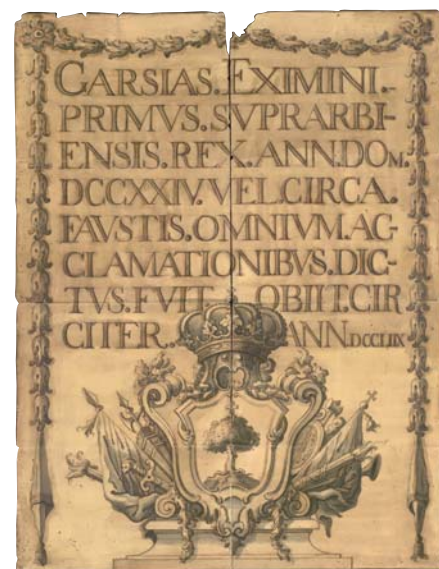 GARSIAS. EXIMINI.
PRIMVS. SVPRARBI-
ENSIS. REX. ANN. DOM.
DCCXXIV. VEL. CIRCA.
FAVSTIS. OMNIVM. AC-
CLAMATIONIBVS. DIC-
TVS. FVIT OBIIT. CIR
CITER. ANN. DCCLIIX